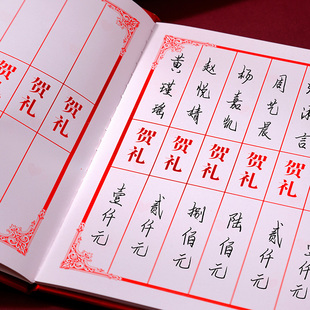 言
贺礼
元
周艺晨
贺礼
贰仟元
杨嘉凯
贺礼
陆佰元
赵悦婧
贺礼
捌佰元
黄瑾瑶
贺礼
贰仟元
壹仟元
贺礼
贺礼
贺礼